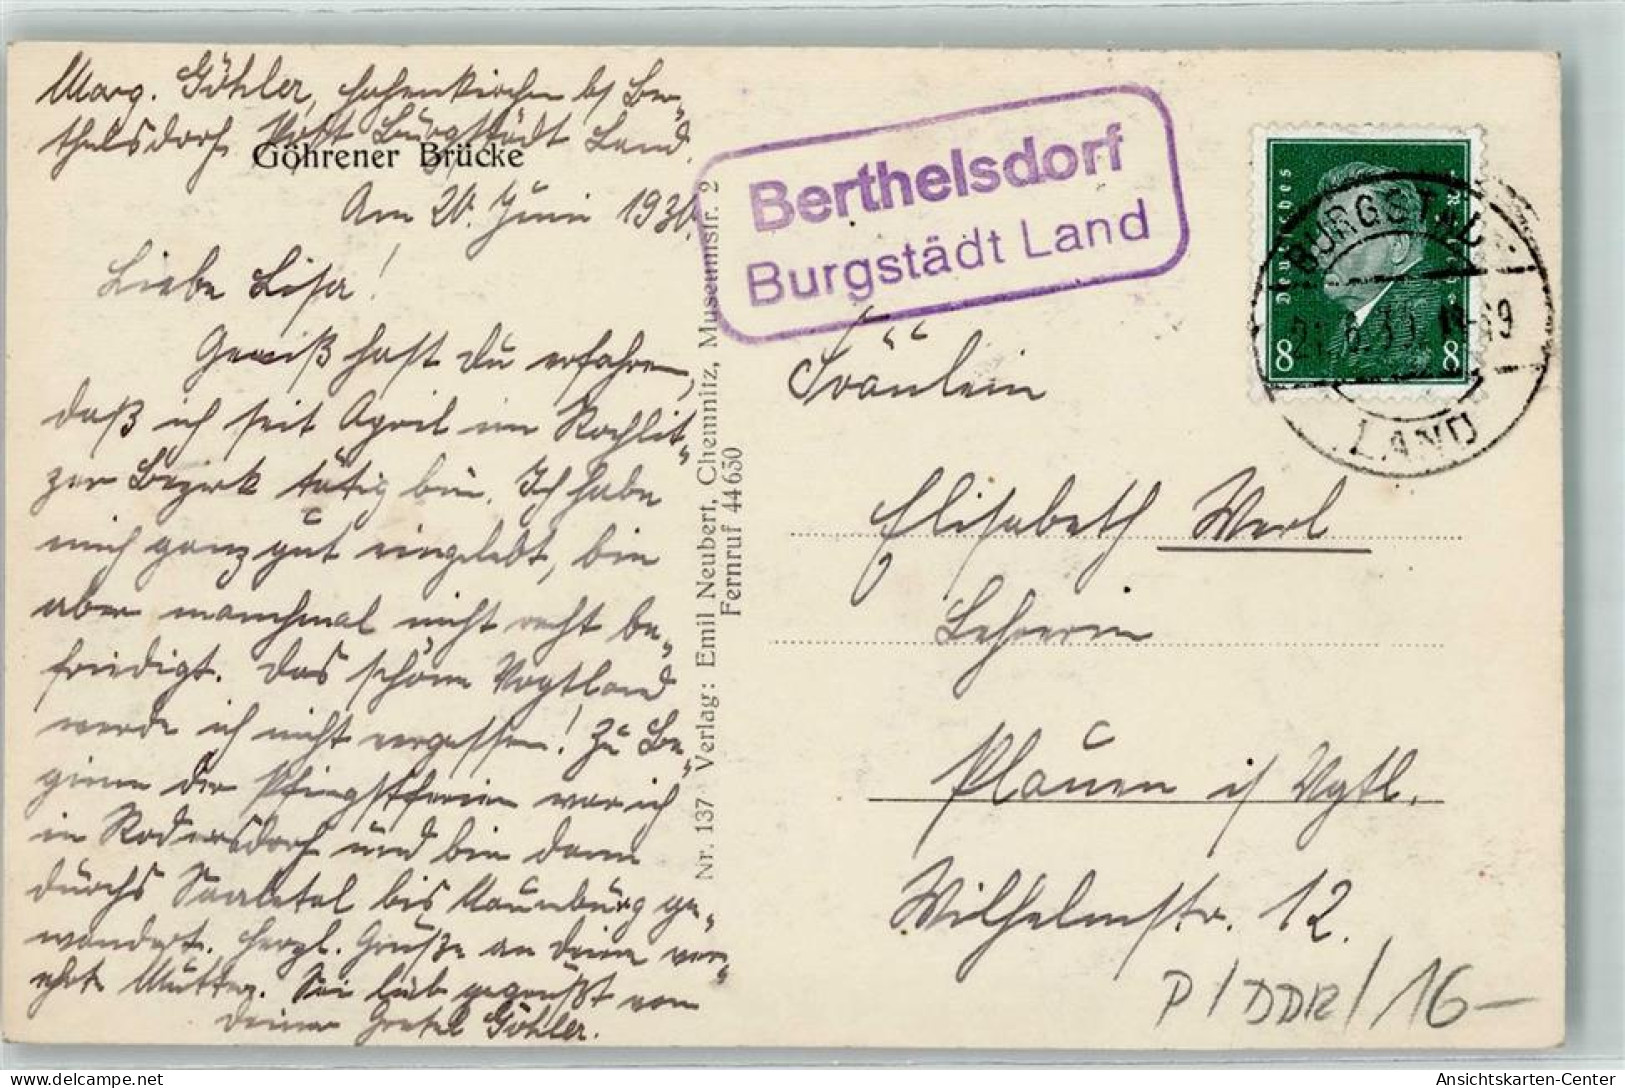 Marg. Göhler, Hohenkirchen b/ Ber-
thelsdorf Post Burgstädt Land.
Göhrener Brücke
Am 20. Juni 1930.
Liebe Lisa!
Gewiß hast Du erfahren,
daß ich seit April im Rochlit-
zer Bezirk tätig bin. Ich habe
mich ganz gut eingelebt, bin
aber manchmal nicht recht be-
friedigt. Das schöne Vogtland
werde ich nicht vergessen! Zu Be-
ginn der Pfingstferien war ich
in Rodersdorf und bin dann
durchs Saaletal bis Naumburg ge-
wandert. Herzl. Grüße an Deine ver-
ehrte Mutter. Sei lieb gegrüßt von
Deiner Gretel Göhler.
Nr. 137 Verlag: Emil Neubert, Chemnitz, Museumstr. 2
Fernruf 44650
Berthelsdorf
Burgstädt Land
Deutsches Reich
8 8
BURGSTÄDT
21.6.30. 18-19
LAND
Fräulein
Elisabeth Werl
Lehrerin
Plauen i/ Vgtl.
Wilhelmstr. 12.
P/DDR/16-
Ansichtskarten-Center